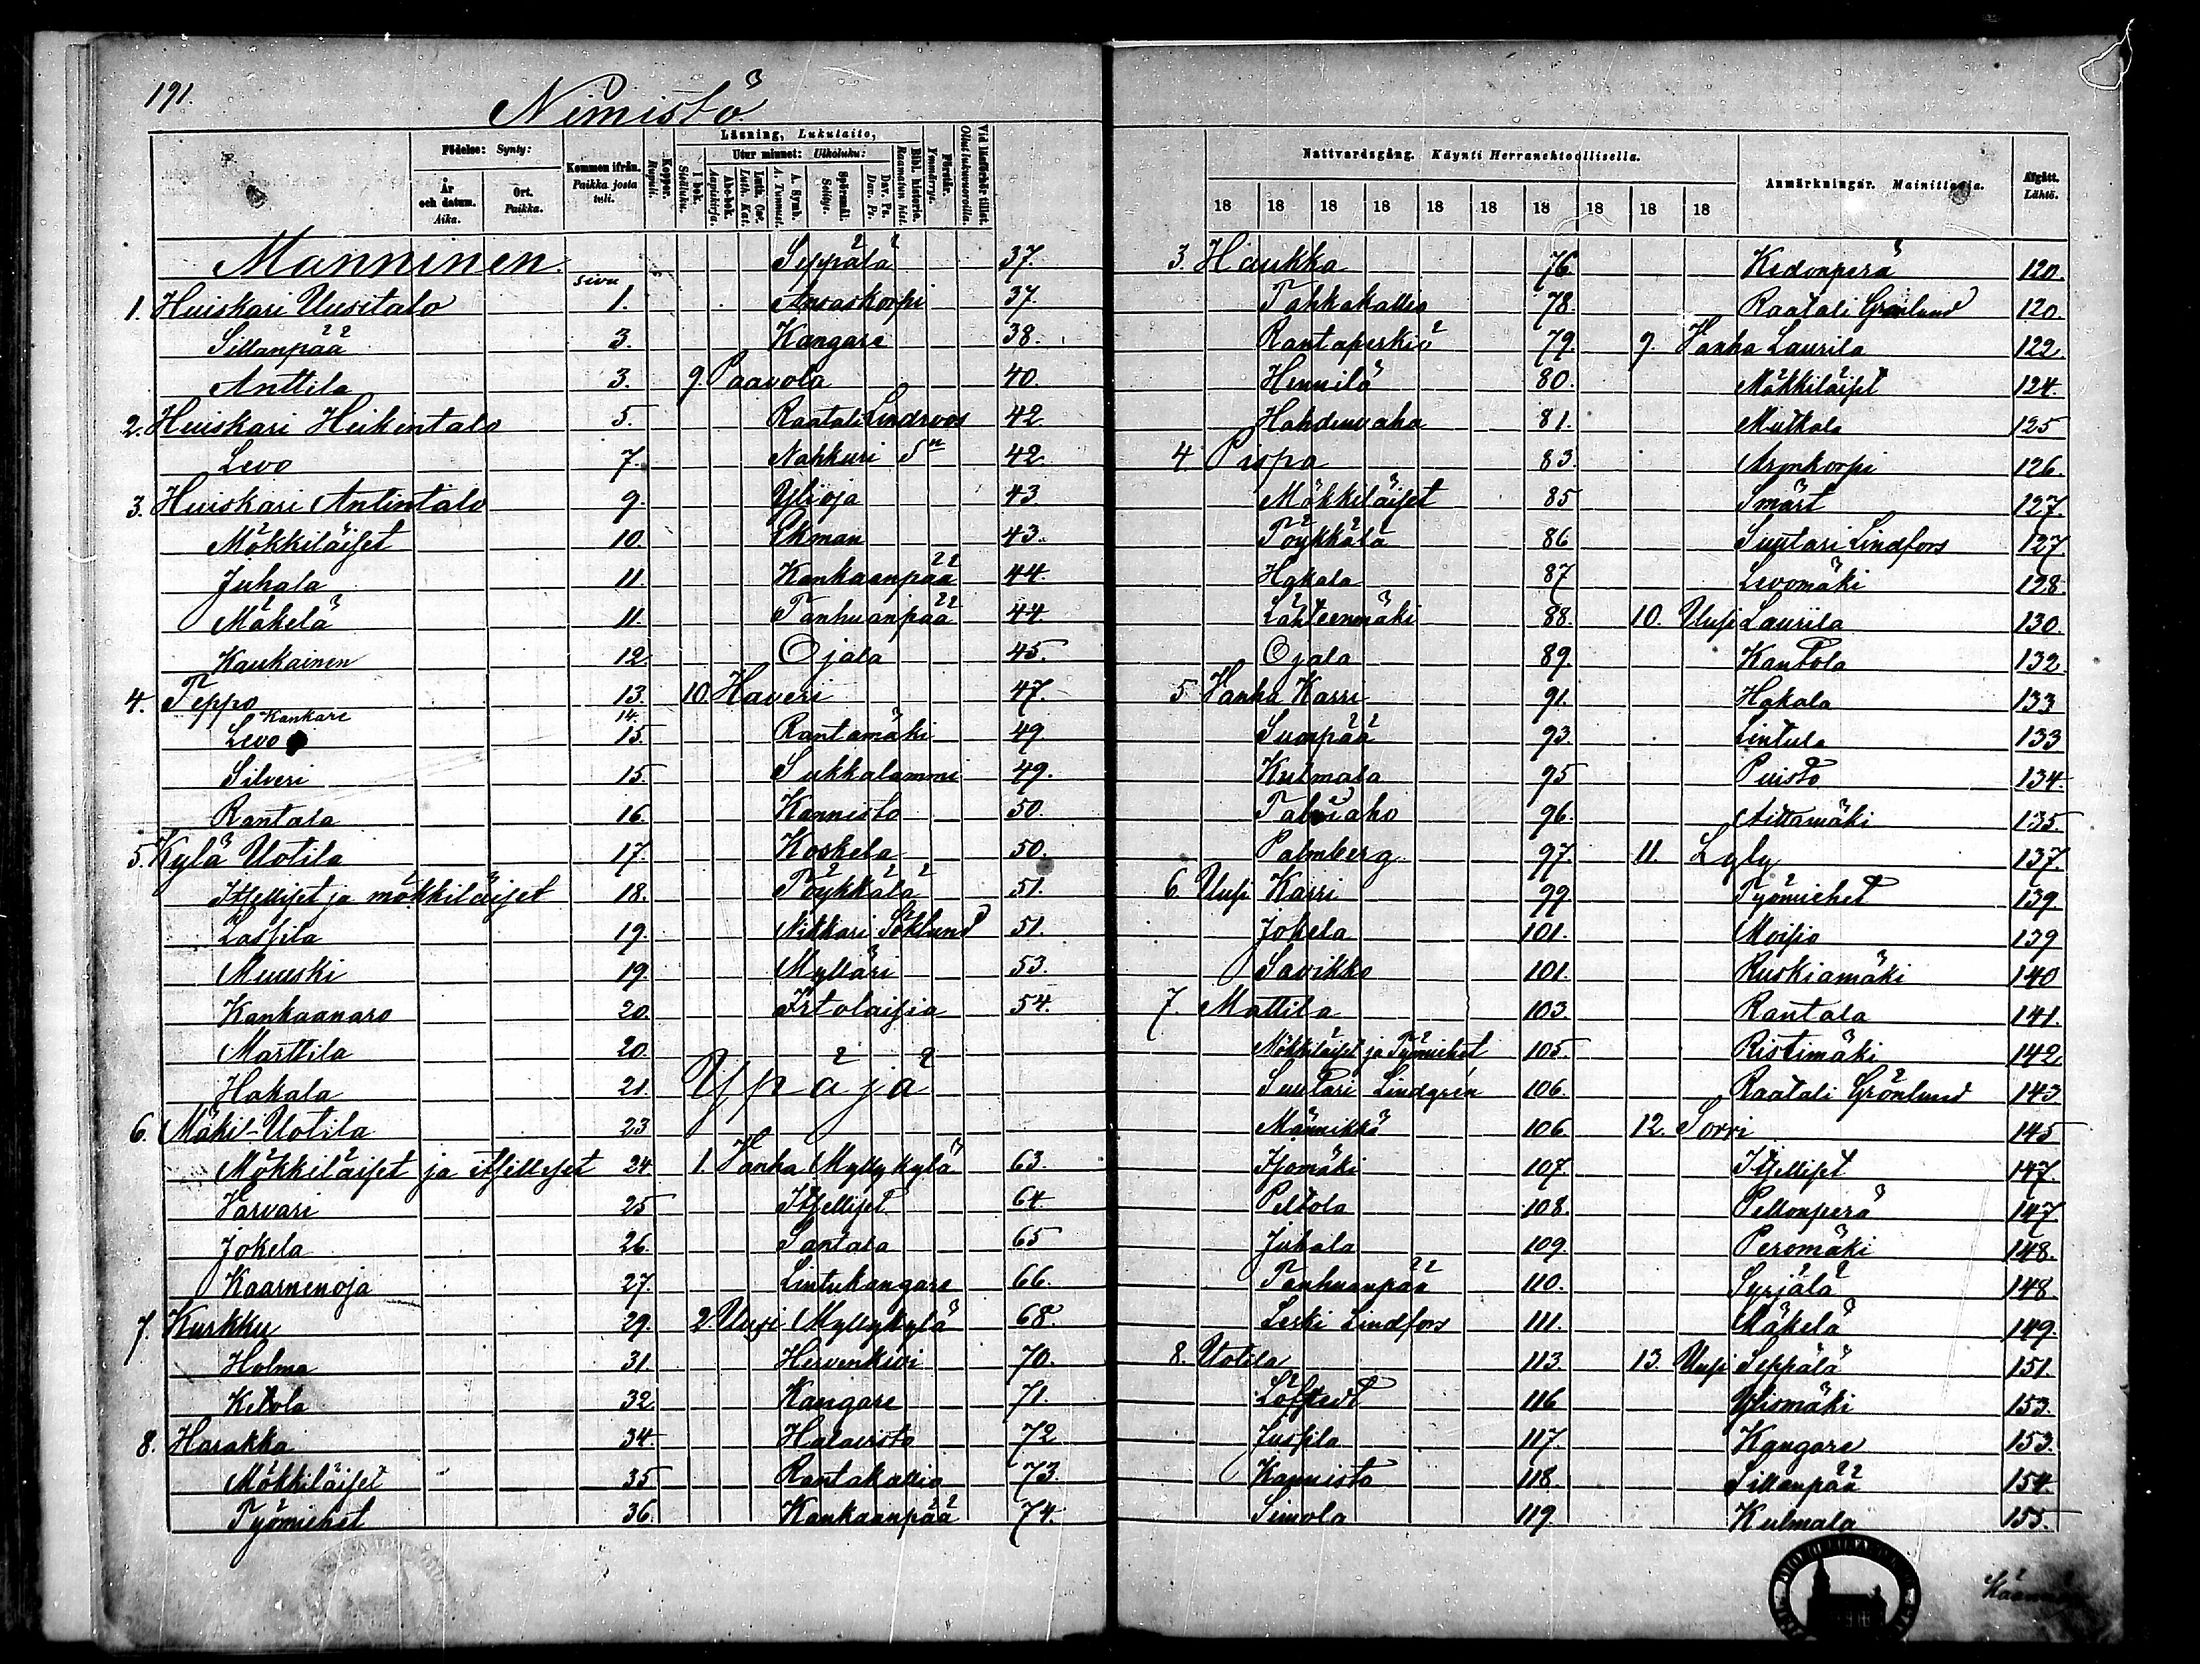 191.
Nimistö
Födelse: Synty:
År och datum. Aika.
Ort. Paikka.
Kommen ifrån. Paikka josta tuli.
Koppor. Rupuli.
Läsning, Lukutaito,
I bok. Sisäluku.
Utur minnet: Ulkoluku:
Abc-bok. Aapiskirja.
Luth. Cat. Luth. Kat.
A. Symb. A. Tunnust.
Spörsmål. Selitys.
Dav. Ps. Dav. Ps.
Bibl. historia. Raamatun hist.
Förstår. Ymmärrys.
Vid läsförhör tillst. Ollut lukuvuorolla.
Manninen
sivu
1. Huiskari Uusitalo 1.
Sillanpää 3.
Anttila 3.
2. Huiskari Heikintalo 5.
Levo 7.
3. Huiskari Antintalo 9.
Mökkiläiset 10.
Juhala 11.
Mäkelä 11.
Kaukainen 12.
4. Teppo 13.
Kankare 14.
Levo 15.
Silveri 15.
Rantala 16.
5. Kylä Uotila 17.
Itselliset ja mökkiläiset 18.
Lassila 19.
Muuski 19.
Kankaanaro 20.
Marttila 20.
Hakala 21.
6. Mäki-Uotila 23
Mökkiläiset ja itselliset 24.
Varvari 25
Jokela 26.
Kaarnenoja 27.
7. Kurkku 29.
Holma 31.
Ketola 32
8. Harakka 34.
Mökkiläiset 35.
Työmiehet 36.
Seppälä 37.
Ansaskorpi 37.
Kangare 38.
9. Paavola 40.
Raatali Lindroos 42
Nahkuri Sn 42.
Ylioja 43.
Ekman 43.
Kankaanpää 44.
Tanhuanpää 44.
Ojala 45.
10. Haveri 47.
Rantamäki 49
Sukkalammi 49.
Kannisto 50.
Koskela 50.
Töykkälä 51.
Nikkari Söklund 51.
Mylläri 53.
Irtolaisia 54.
Ypäjä
1. Vanha Myllykylä 63.
Itselliset 64.
Santala 65
Lintukangare 66.
2. Uusi Myllykylä 68.
Hirvenkivi 70.
Kangare 71.
Halavisto 72
Rantakallio 73
Kankaanpää 74.
Nattvardsgång. Käynti Herranehtoollisella.
18 18 18 18 18 18 18 18 18 18
Anmärkningar. Mainittavia.
Afgått. Lähtö.
3. Haukka 76
Tahkakallio 78.
Rantaperkiö 79.
Hennilä 80.
Hahdinvaha 81.
4 Pispa 83.
Mökkiläiset 85
Töykkälä 86
Hakala 87
Lähteenmäki 88.
Ojala 89.
5. Vanha Karri 91.
Suonpää 93.
Kulmala 95
Talviaho 96.
Palmberg 97.
6. Uusi Karri 99
Jokela 101.
Savikko 101.
7. Mattila 103.
Mökkiläiset ja Työmiehet 105.
Suutari Lindgrén 106.
Männikkö 106.
Isomäki 107.
Peltola 108.
Juhala 109.
Tanhuanpää 110.
Leski Lindfors 111.
8. Uotila 113.
Löfstedt 116
Jussila 117.
Kannisto 118.
Simola 119
Kedonperä 120.
Raatali Grönlund 120.
9. Vanha Laurila 122.
Mökkiläiset 124.
Mutkala 125
Aronkorpi 126.
Smärt 127.
Suutari Lindfors 127
Levomäki 128.
10. Uusi Laurila 130.
Kantola 132
Hakala 133
Lintula 133
Puisto 134.
Aittamäki 135.
11. Lyly 137.
Työmiehet 139.
Moisio 139
Ruskiamäki 140
Rantala 141.
Ristimäki 142
Raatali Grönlund 143
12. Sorri 145
Itselliset 147.
Peltonperä 147
Peromäki 148.
Syrjälä 148
Mäkelä 149.
13. Uusi Seppälä 151.
Ylismäki 153.
Kangare 153.
Sillanpää 154.
Kulmala 155.